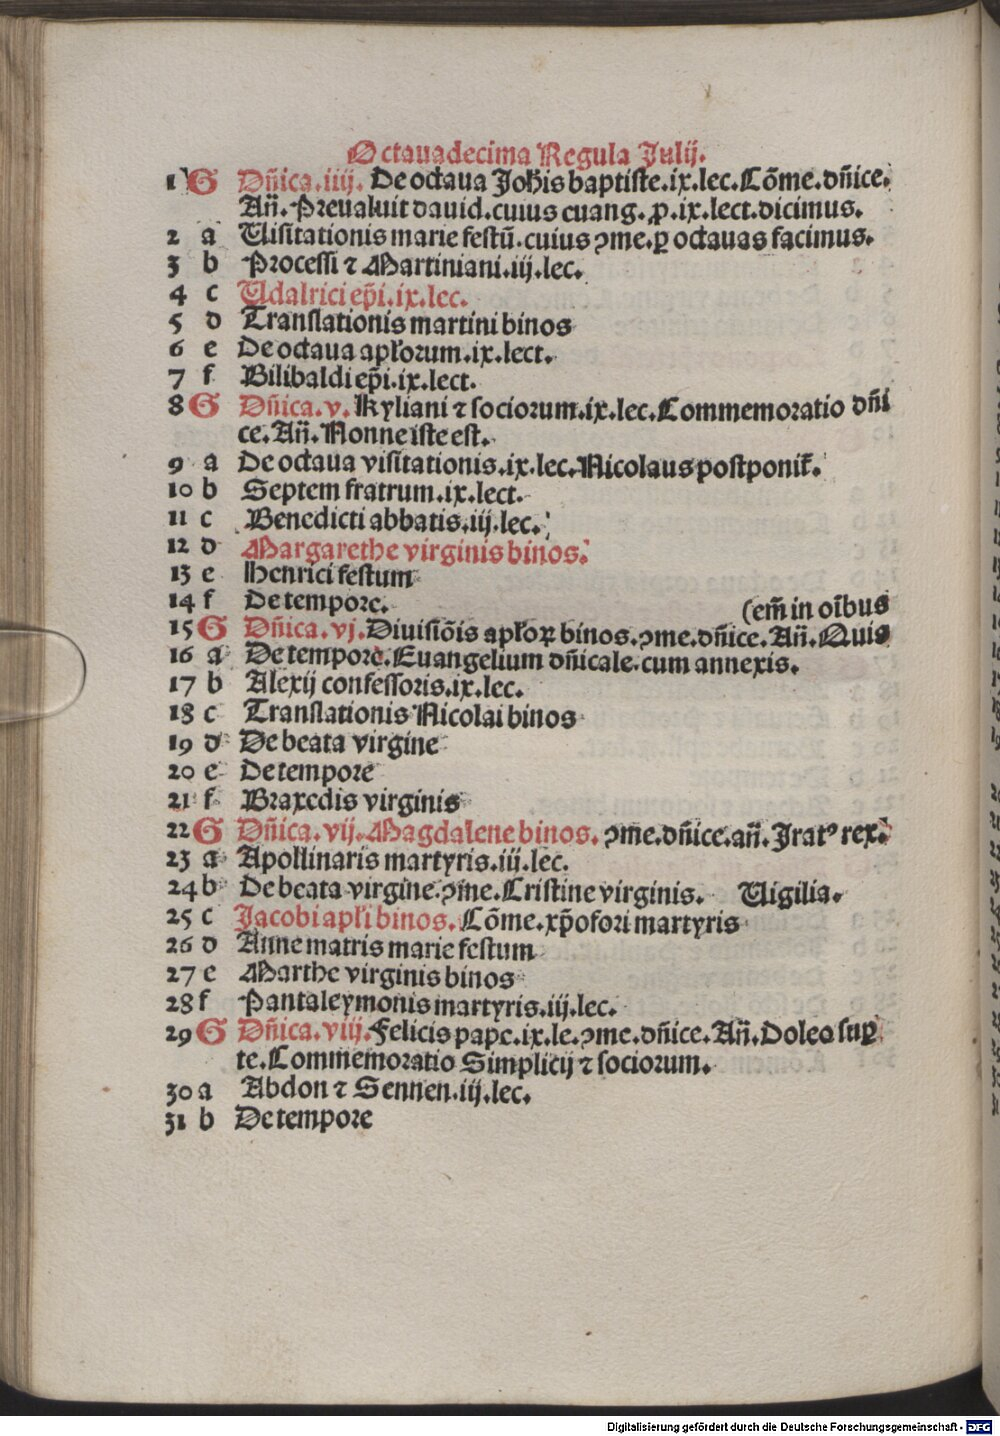 Octauadecima Regula Julij.
1 G Dn̄ica.iiij. De octaua Joh̄is baptiste.ix.lec.Cōme.dn̄ice.
An̄. Preualuit dauid.cuius euang.ꝓ.ix.lect.dicimus.
2 a Uisitationis marie festū.cuius ꝯme.ꝑ octauas facimus.
3 b Processi ⁊ Martiniani.iij.lec.
4 c Udalrici ep̄i.ix.lec.
5 d Translationis martini binos
6 e De octaua apl̄orum.ix.lect.
7 f Bilibaldi ep̄i.ix.lect.
8 G Dn̄ica.v. Kyliani ⁊ sociorum.ix.lec.Commemoratio dn̄i
ce.An̄.Nonne iste est.
9 a De octaua visitationis.ix.lec.Nicolaus postponit̄.
10 b Septem fratrum.ix.lect.
11 c Benedicti abbatis.iij.lec.
12 d Margarethe virginis binos.
13 e Henrici festum
14 f De tempore. (em̄ in oībus
15 G Dn̄ica.vj.Diuisiōis apl̄oꝝ binos.ꝯme.dn̄ice.An̄.Quis
16 a De tempore.Euangelium dn̄icale.cum annexis.
17 b Alexij confessoris.ix.lec.
18 c Translationis Nicolai binos
19 d De beata virgine
20 e De tempore
21 f Braxedis virginis
22 G Dn̄ica.vij.Magdalene binos. ꝯme.dn̄ice.an̄.Iratꝰ rex.
23 a Apollinaris martyris.iij.lec.
24 b De beata virgine.ꝯme.Cristine virginis. Uigilia.
25 c Jacobi apl̄i binos. Cōme.xp̄ofori martyris
26 d Anne matris marie festum
27 e Marthe virginis binos
28 f Pantaleymonis martyris.iij.lec.
29 G Dn̄ica.viij.Felicis pape.ix.le.ꝯme.dn̄ice.An̄.Doleo suꝑ
te.Commemoratio Simplicij ⁊ sociorum.
30 a Abdon ⁊ Sennen.iij.lec.
31 b De tempore
Digitalisierung gefördert durch die Deutsche Forschungsgemeinschaft - DFG